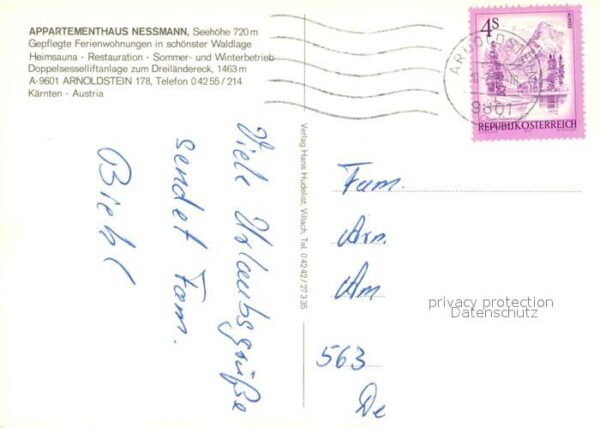 APPARTEMENTHAUS NESSMANN, Seehöhe 720 m
Gepflegte Ferienwohnungen in schönster Waldlage
Heimsauna - Restauration - Sommer- und Winterbetrieb
Doppelsesselliftanlage zum Dreiländereck, 1463 m
A-9601 ARNOLDSTEIN 178, Telefon 0 42 55 / 214
Kärnten - Austria
Viele Urlaubsgrüße
sendet Fam.
Biehl
Verlag Hans Hudelist, Villach, Tel. 0 42 42 / 27 3 35
4 S
REPUBLIK ÖSTERREICH
ARNOLDSTEIN
9601
Fam.
Am
563
De
privacy protection
Datenschutz